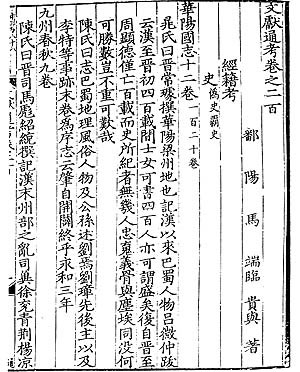 文獻通考卷之二百
鄱陽馬端臨貴與著
經籍考
史 偽史霸史
華陽國志十二卷 二十卷
晁氏曰晉常璩撰華陽梁州地也記漢以來巴蜀人物呂微仲跋
云漢至晉初四百載間士女可書四百人亦可謂盛矣復自晉至
周顯德僅七百載而史所紀者無幾人忠魂義骨與塵埃同沒何
可勝數豈不重可歎哉
陳氏曰志巴蜀地理風俗人物及公孫述劉焉劉璋先後主以及
李特等事跡末卷為序志云肇自開闢終乎永和三年
九州春秋九卷
陳氏曰司馬彪紹統撰記漢末州部之亂司冀徐兗青荆楊涼